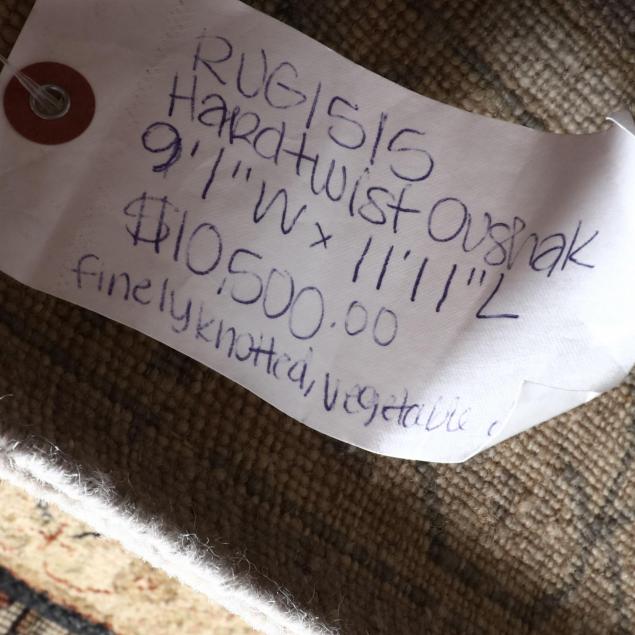 RUG1515
Hardtwist Oushak
9'1"W x 11'11"L
$10,500.00
finely knotted, vegetable